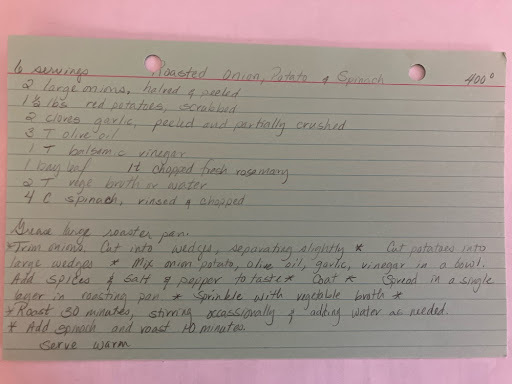 6 servings Roasted Onion, Potato & Spinach 400°
2 large onions, halved & peeled
1½ lbs red potatoes, scrubbed
2 cloves garlic, peeled and partially crushed
3 T olive oil
1 T balsamic vinegar
1 bay leaf 1t chopped fresh rosemary
2 T vege broth or water
4 C spinach, rinsed & chopped
Grease large roaster pan.
*Trim onions. Cut into wedges, separating slightly * Cut potatoes into
large wedges * Mix onion potato, olive oil, garlic, vinegar in a bowl.
Add spices & salt & pepper to taste * Coat * Spread in a single
layer in roasting pan * Sprinkle with vegetable broth *
*Roast 30 minutes, stirring occassionally & adding water as needed.
* Add spinach and roast 10 minutes.
Serve warm